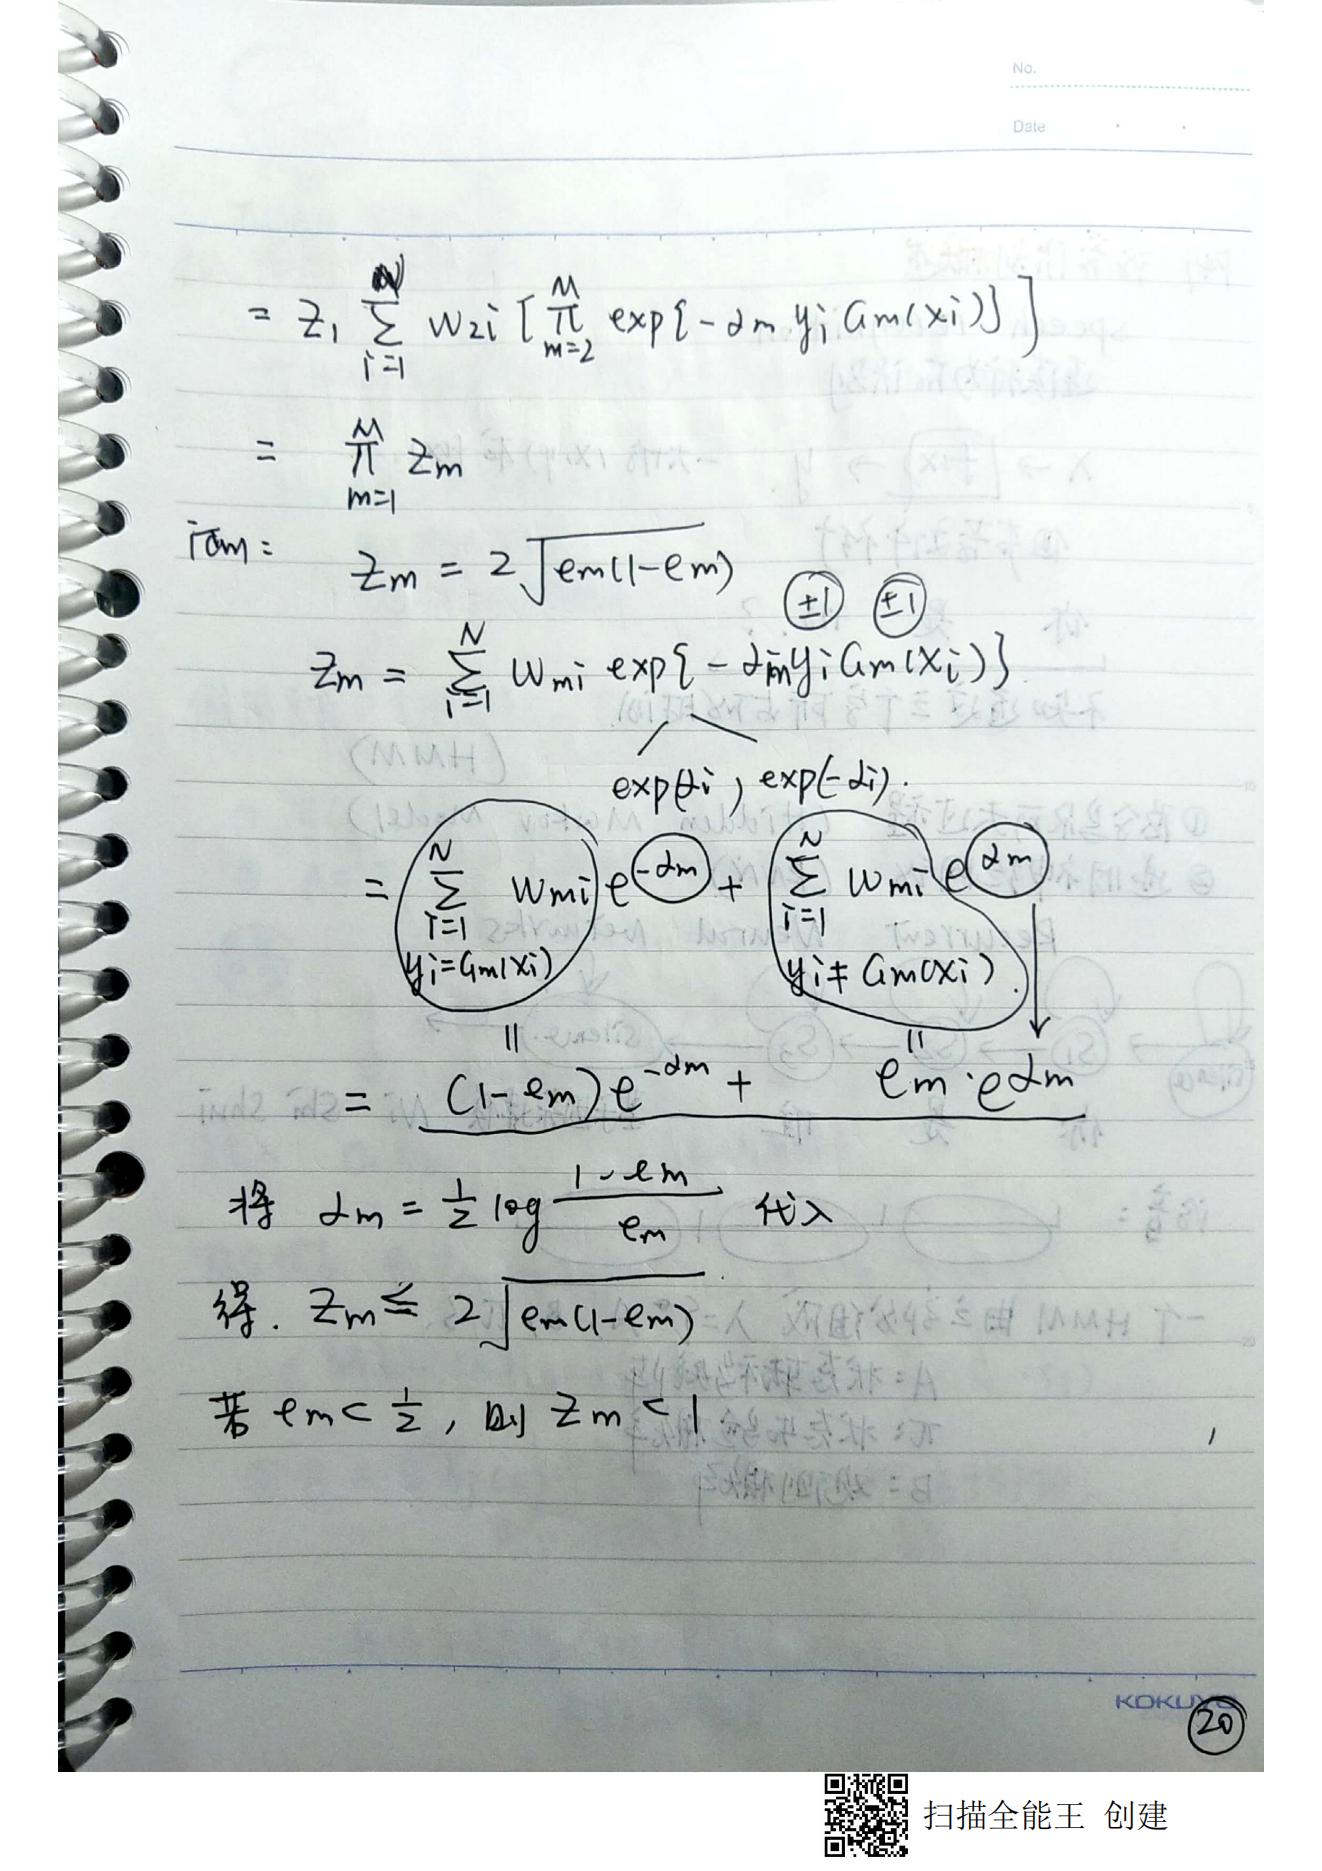 No.
Date
= Z₁ ∑_{i=1}^{N} W₂i [∏_{m=2}^{M} exp{-αm yi Gm(xi)}]
= ∏_{m=1}^{M} Zm
证明: Zm = 2√(em(1-em))
±1 ±1
Zm = ∑_{i=1}^{N} Wmi exp{-αm yi Gm(xi)}
exp(αi), exp(-αi).
= ∑_{i=1, yi=Gm(xi)}^{N} Wmi e^{-αm} + ∑_{i=1, yi≠Gm(xi)}^{N} Wmi e^{αm}
= (1-em)e^{-αm} + em·e^{αm}
将 αm = ½ log (1-em)/em 代入
得. Zm ≤ 2√(em(1-em))
若 em < ½, 则 Zm < 1
KOKUYO
20
扫描全能王 创建